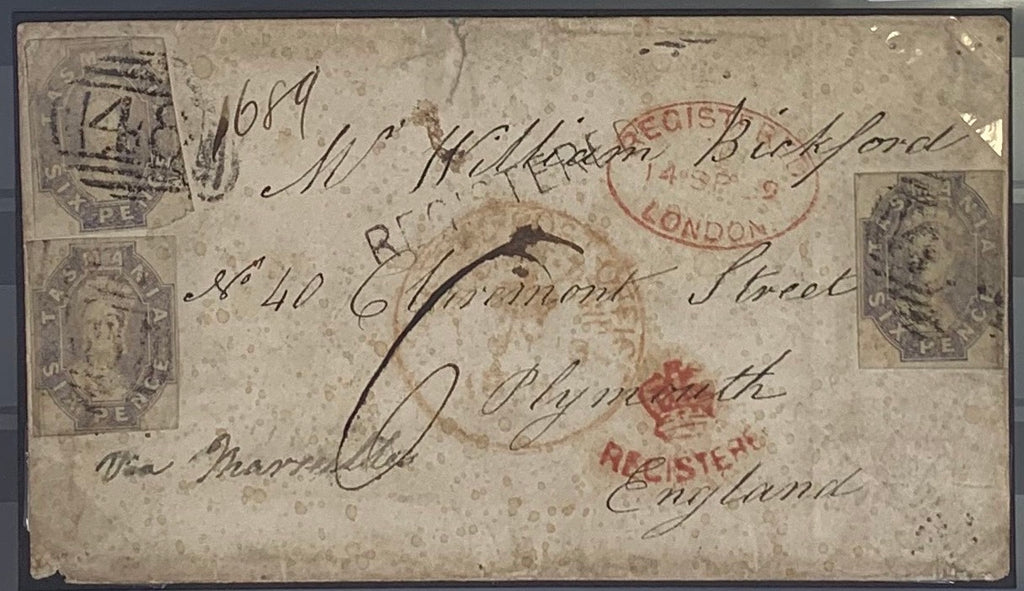 TAS
SIX PE
1689
REGISTERED
14 SP 9
LONDON
Mr William Bickford
REGISTERED
TASMANIA
SIX PENCE
No 40 Claremont Street
TASMANIA
SIX PENCE
Plymouth
REGISTERED
Via Marseilles
6
England